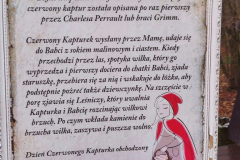 czerwony kaptur została opisana po raz pierwszy
przez Charlesa Perrault lub braci Grimm.
Czerwony Kapturek wysłany przez Mamę, udaje się
do Babci z sokiem malinowym i ciastem. Kiedy
przechodzi przez las, spotyka wilka, który go
wyprzedza i pierwszy dociera do chatki Babci, zjada
staruszkę, przebiera się za nią i wskakuje do łóżka, aby
podstępnie pożreć także dziewczynkę. Na szczęście w
porę zjawia się Leśniczy, który uwalnia
Kapturka i Babcię rozcinając wilkowi
brzuch. Po czym wkłada kamienie do
brzucha wilka, zaszywa i puszcza wolno.
Dzień Czerwonego Kapturka obchodzony